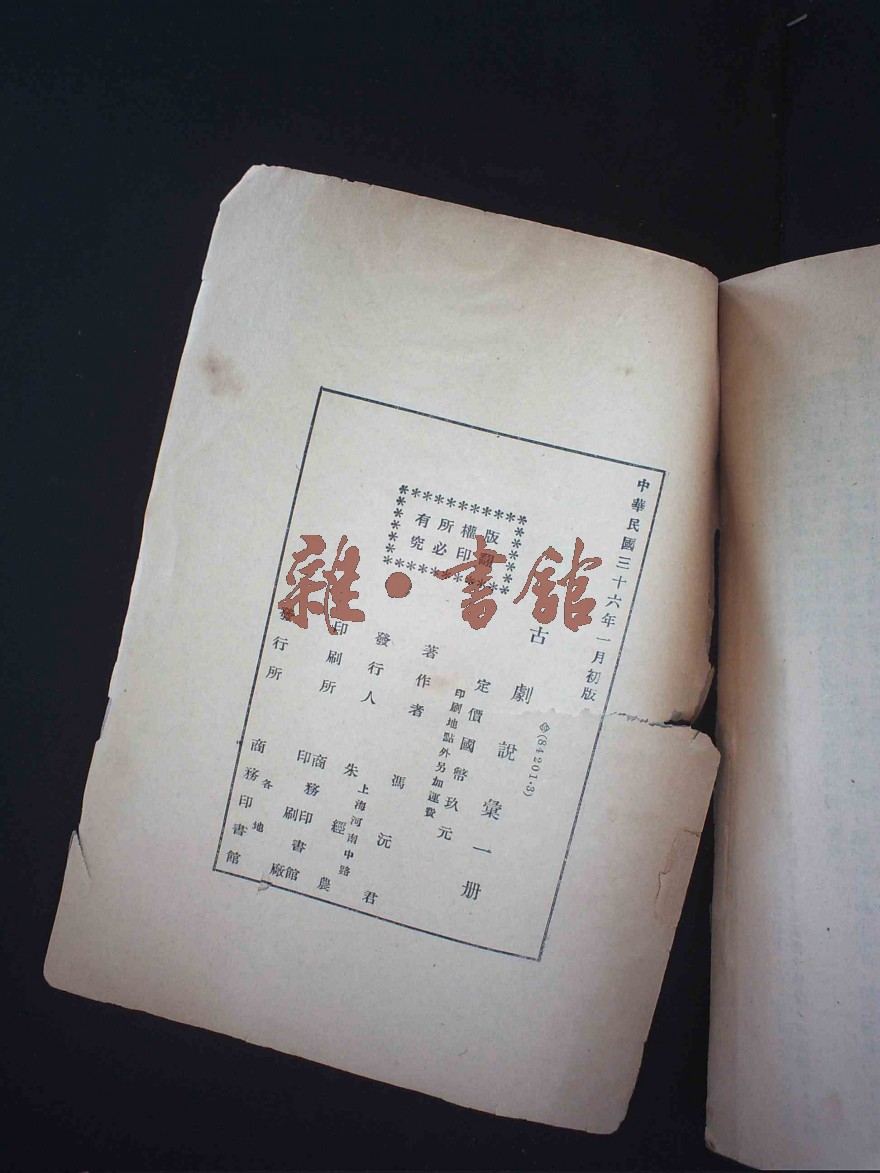 中華民國三十六年一月初版
(84201·3)
古劇說彙一册
定價國幣玖元
印刷地點外另加運費
著作者 馮沅君
發行人 朱經農
上海河南中路
印刷所 商務印書館
印刷廠
發行所 商務印書館
各地
版權所有
翻印必究
雜·書館